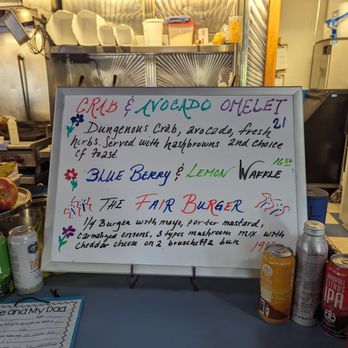 CRAB & AVOCADO OMELET
21
Dungenous Crab, avocado, fresh
hirbs. Served with hashbrowns and choice
of Toast.
BLUE BERRY & LEMON WAFFLE
16.50
THE FAIR BURGER
1/4 Burger with mayo, porter mustard,
carmalized onions, 3 types mushroom mix with
cheddar cheese on a bruschetta bun
e and My Dad
IPA